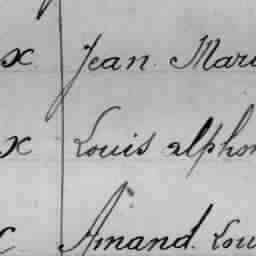 x Jean Mari
x Louis alphon
Amand. Lou